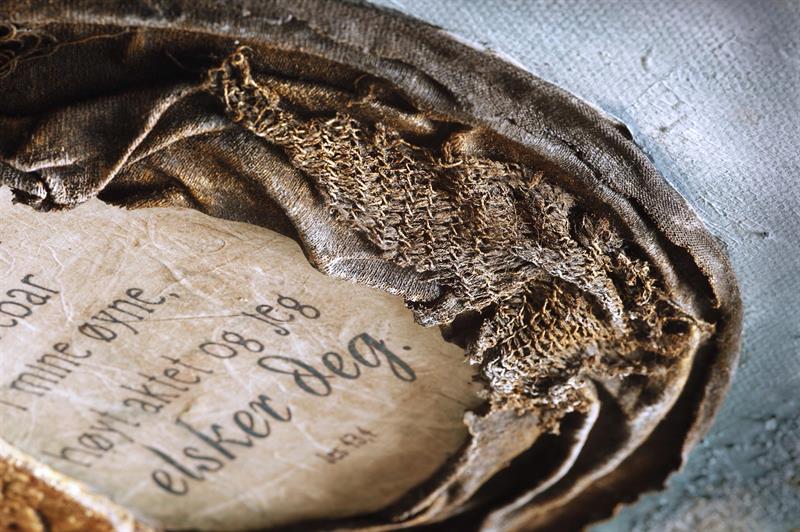 i mine øyne,
høyt aktet og jeg
elsker deg.
Jes 43,4